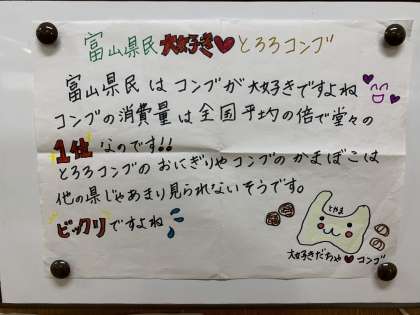 富山県民大好き♥とろろコンブ
富山県民はコンブが大好きですよね
コンブの消費量は全国平均の倍で堂々の
1位なのです!!
とろろコンブのおにぎりやコンブのかまぼこは
他の県じゃあまり見られないそうです。
ビックリですよね
とやま
大好きだちゃ♥コンブ